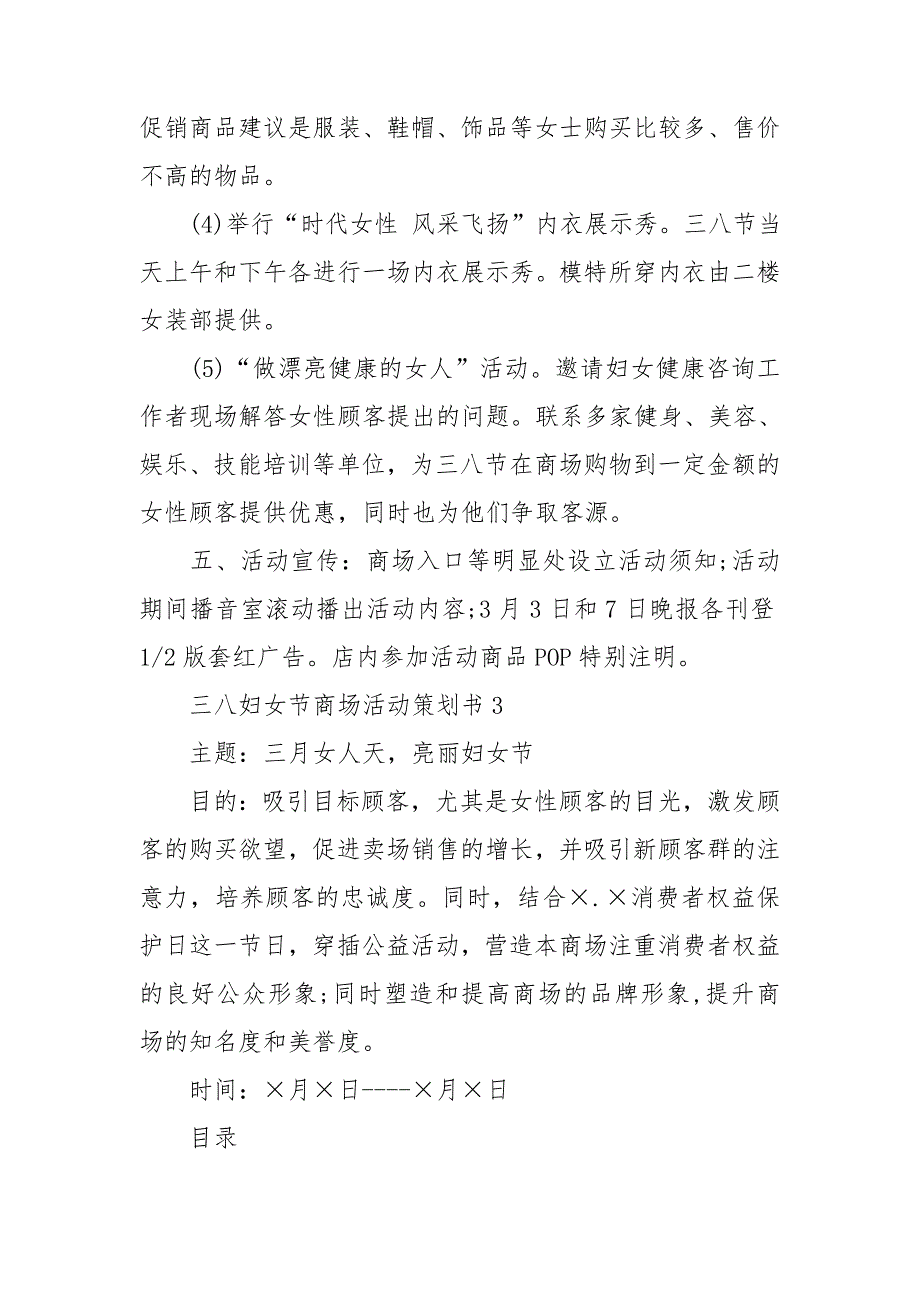 促销商品建议是服装、鞋帽、饰品等女士购买比较多、售价
不高的物品。
(4)举行“时代女性 风采飞扬”内衣展示秀。三八节当
天上午和下午各进行一场内衣展示秀。模特所穿内衣由二楼
女装部提供。
(5)“做漂亮健康的女人”活动。邀请妇女健康咨询工
作者现场解答女性顾客提出的问题。联系多家健身、美容、
娱乐、技能培训等单位，为三八节在商场购物到一定金额的
女性顾客提供优惠，同时也为他们争取客源。
五、活动宣传：商场入口等明显处设立活动须知;活动
期间播音室滚动播出活动内容;3月3日和7日晚报各刊登
1/2版套红广告。店内参加活动商品POP特别注明。
三八妇女节商场活动策划书3
主题：三月女人天，亮丽妇女节
目的：吸引目标顾客，尤其是女性顾客的目光，激发顾
客的购买欲望，促进卖场销售的增长，并吸引新顾客群的注
意力，培养顾客的忠诚度。同时，结合×.×消费者权益保
护日这一节日，穿插公益活动，营造本商场注重消费者权益
的良好公众形象;同时塑造和提高商场的品牌形象,提升商
场的知名度和美誉度。
时间：×月×日----×月×日
目录